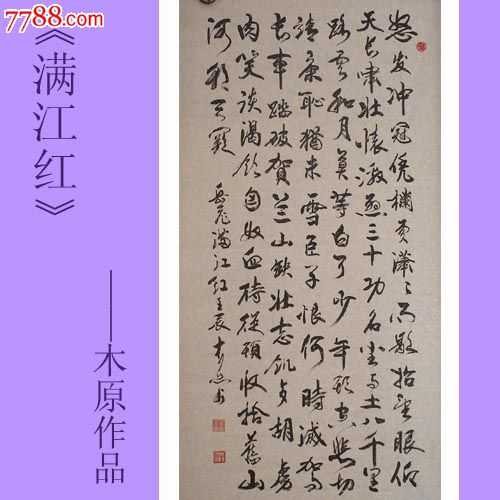 7788.com
《满江红》
——木原作品
怒发冲冠凭欄處潇々雨歇抬望眼仰
天长啸壮懷激烈三十功名尘与土八千里
路雲和月莫等白了少年頭空悲切
靖康恥猶未雪臣子恨何時滅駕
长車踏破賀兰山缺壮志飢餐胡虜
肉笑談渴飲匈奴血待從頭收拾舊山
河朝天闕 岳飞满江红壬辰